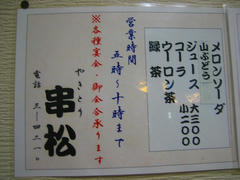 メロンソーダ
山ぶどう
ジュース 大三〇〇
コーラ 小二〇〇
ウーロン茶
緑茶
営業時間
五時〜十時まで
※各種宴会・御会合承ります
やきとり
串松
電話 三ー四二一〇